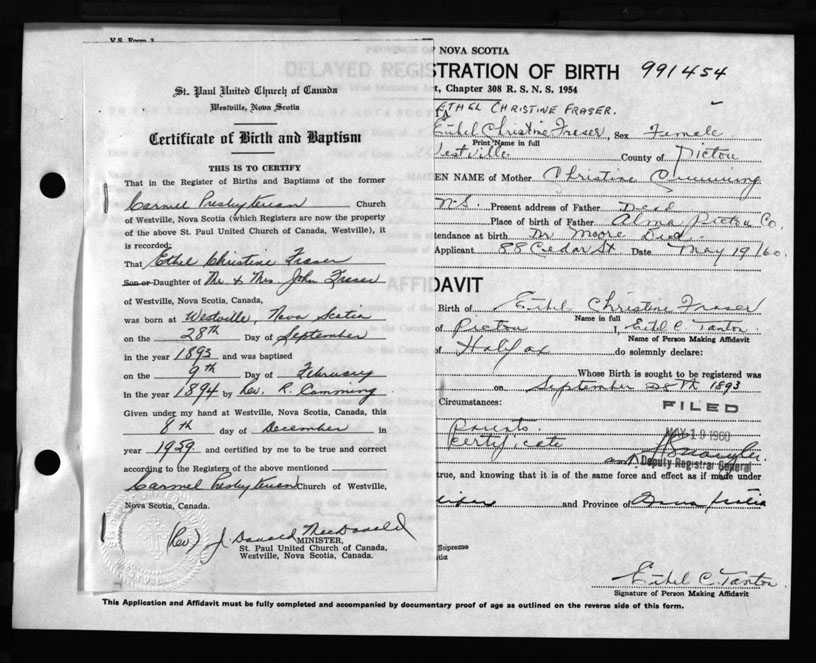 V.S. Form 3
St. Paul United Church of Canada
Westville, Nova Scotia
Certificate of Birth and Baptism
THIS IS TO CERTIFY
That in the Register of Births and Baptisms of the former
Carmel Presbyterian Church
of Westville, Nova Scotia (which Registers are now the property
of the above St. Paul United Church of Canada, Westville), it
is recorded:
That Ethel Christine Fraser
Son or Daughter of Mr. & Mrs John Fraser
of Westville, Nova Scotia, Canada,
was born at Westville, Nova Scotia
on the 28th Day of September
in the year 1893 and was baptised
on the 9th Day of February
in the year 1894 by Rev. R. Cumming
Given under my hand at Westville, Nova Scotia, Canada, this
8th day of December in
year 1959 and certified by me to be true and correct
according to the Registers of the above mentioned
Carmel Presbyterian Church of Westville,
Nova Scotia, Canada.
(Rev) J. Donald MacDonald
MINISTER,
St. Paul United Church of Canada,
Westville, Nova Scotia, Canada.
PROVINCE OF NOVA SCOTIA
DELAYED REGISTRATION OF BIRTH 991454
t, Chapter 308 R. S. N. S. 1954
ETHEL CHRISTINE FRASER.
Ethel Christine Fraser, Sex Female
Print Name in full
Westville County of Pictou
EN NAME of Mother Christine Cumming
N.S. Present address of Father Dead
Place of birth of Father Alma Pictou Co.
tendance at birth Dr Moore Died.
Applicant 88 Cedar St. Date May 19/60.
AFFIDAVIT
Birth of Ethel Christine Fraser
Name in full
of Pictou I, Ethel C. Tanton.
Name of Person Making Affidavit
of Halifax do solemnly declare:
Whose Birth is sought to be registered was
on September 28th 1893
Circumstances:
FILED
Parents.
certificate
MAY 19 1960
Deputy Registrar General
true, and knowing that it is of the same force and effect as if made under
and Province of Nova Scotia
Supreme
tia
Ethel C. Tanton.
Signature of Person Making Affidavit
This Application and Affidavit must be fully completed and accompanied by documentary proof of age as outlined on the reverse side of this form.